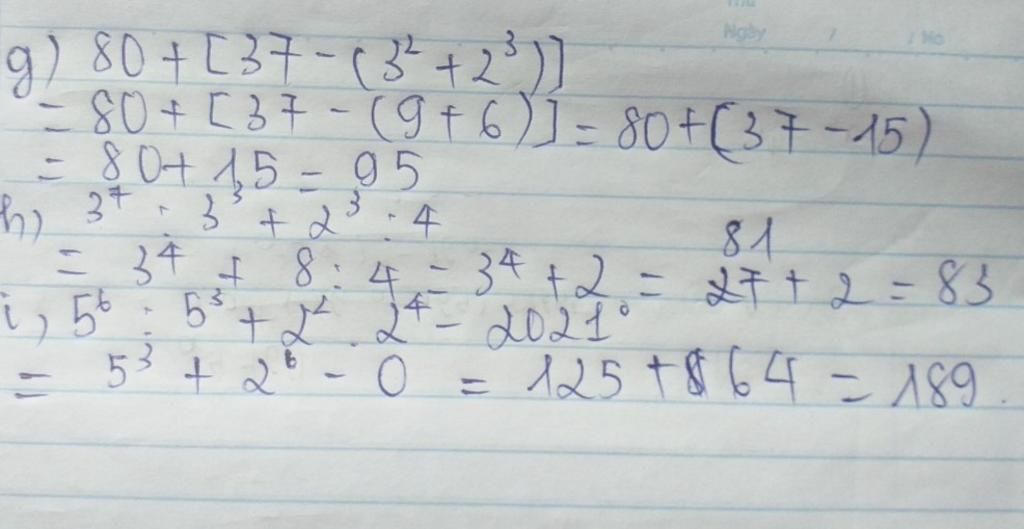 Ngày / / No
g) 80 + [37 - (3² + 2³)]
= 80 + [37 - (9 + 6)] = 80 + (37 - 15)
= 80 + 15 = 95
h) 3⁷ : 3³ + 2³ : 4
81
= 3⁴ + 8 : 4 = 3⁴ + 2 = 27 + 2 = 83
i, 5⁶ : 5³ + 2² . 2⁴ - 2021⁰
= 5³ + 2⁶ - 0 = 125 + 64 = 189.